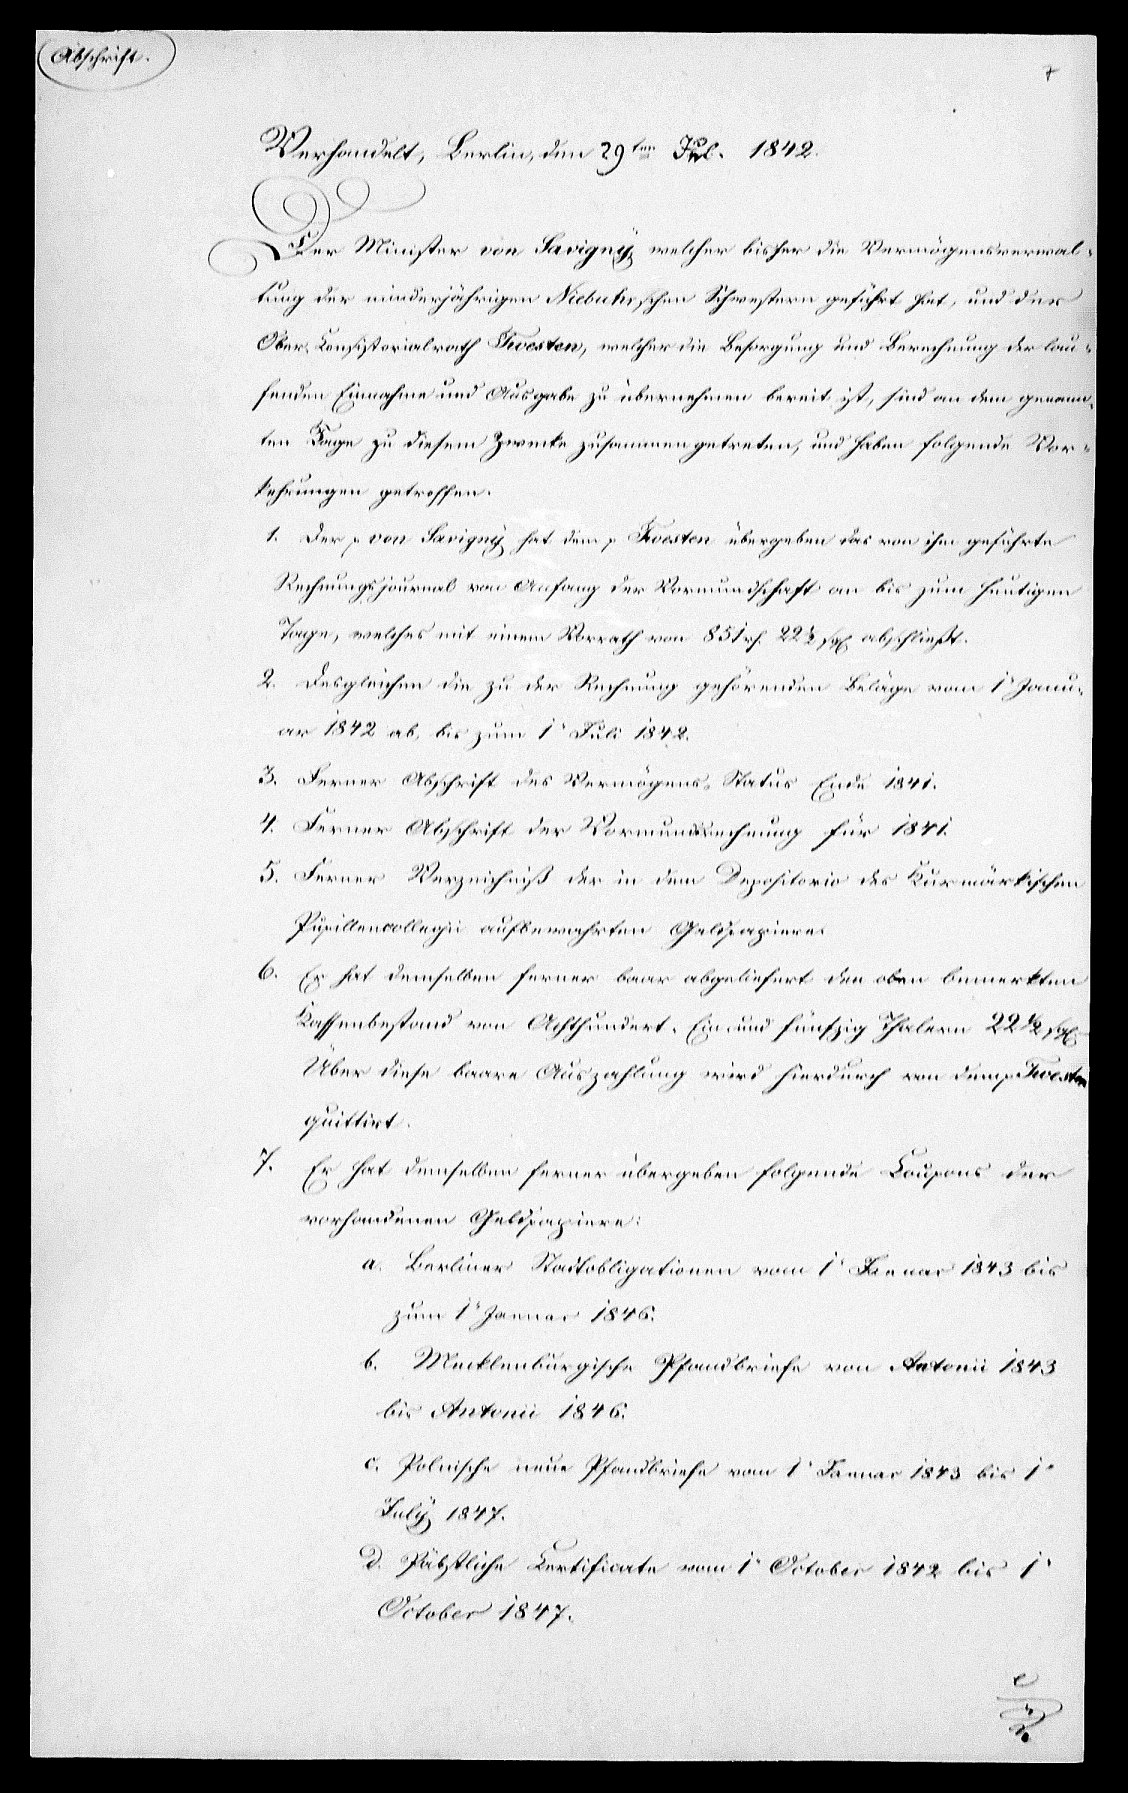 Abschrift.
7
Verhandelt, Berlin, den 29ten Jul. 1842.
Der Minister von Savigny, welcher bisher die Vermögensverwal-
tung der minderjährigen Niebuhrschen Schwestern geführt hat, und der
Ober-Consistorialrath Twesten, welcher die Besorgung und Berechnung der lau-
fenden Einnahme und Ausgabe zu übernehmen bereit ist, sind an dem genann-
ten Tage zu diesem Zwecke zusammengetreten, und haben folgende Vor-
kehrungen getroffen.
1. Der p von Savigny hat dem p Twesten übergeben das von ihm geführte
Rechnungsjournal von Anfang der Vormundschaft an bis zum heutigen
Tage, welches mit einem Vorrath von 851 rh. 22½ sgl abschließt.
2. Desgleichen die zu der Rechnung gehörenden Beläge vom 1r Janu-
ar 1842 ab, bis zum 1r Juli 1842.
3. Ferner Abschrift des Vermögens-Status Ende 1841.
4. Ferner Abschrift der Vormundsrechnung für 1841.
5. Ferner Verzeichniß der in dem Depositorio des Kurmärkischen
Pupillencollegii aufbewahrten Geldpapiere.
6. Er hat demselben ferner baar abgeliefert den oben bemerkten
Kassenbestand von Achthundert-Ein und fünfzig Thalern 22½ sgl
Über diese baare Auszahlung wird hierdurch von dem p Twesten
quittirt.
7. Er hat demselben ferner übergeben folgende Coupons der
vorhandenen Geldpapiere:
a. Berliner Stadtobligationen vom 1r Januar 1843 bis
zum 1r Januar 1846.
b. Mecklenburgische Pfandbriefe von Antonii 1843
bis Antonii 1846.
c. Polnische neue Pfandbriefe vom 1r Januar 1843 bis 1r
July 1847.
d. Päbstliche Certificate vom 1r October 1842 bis 1r
October 1847.